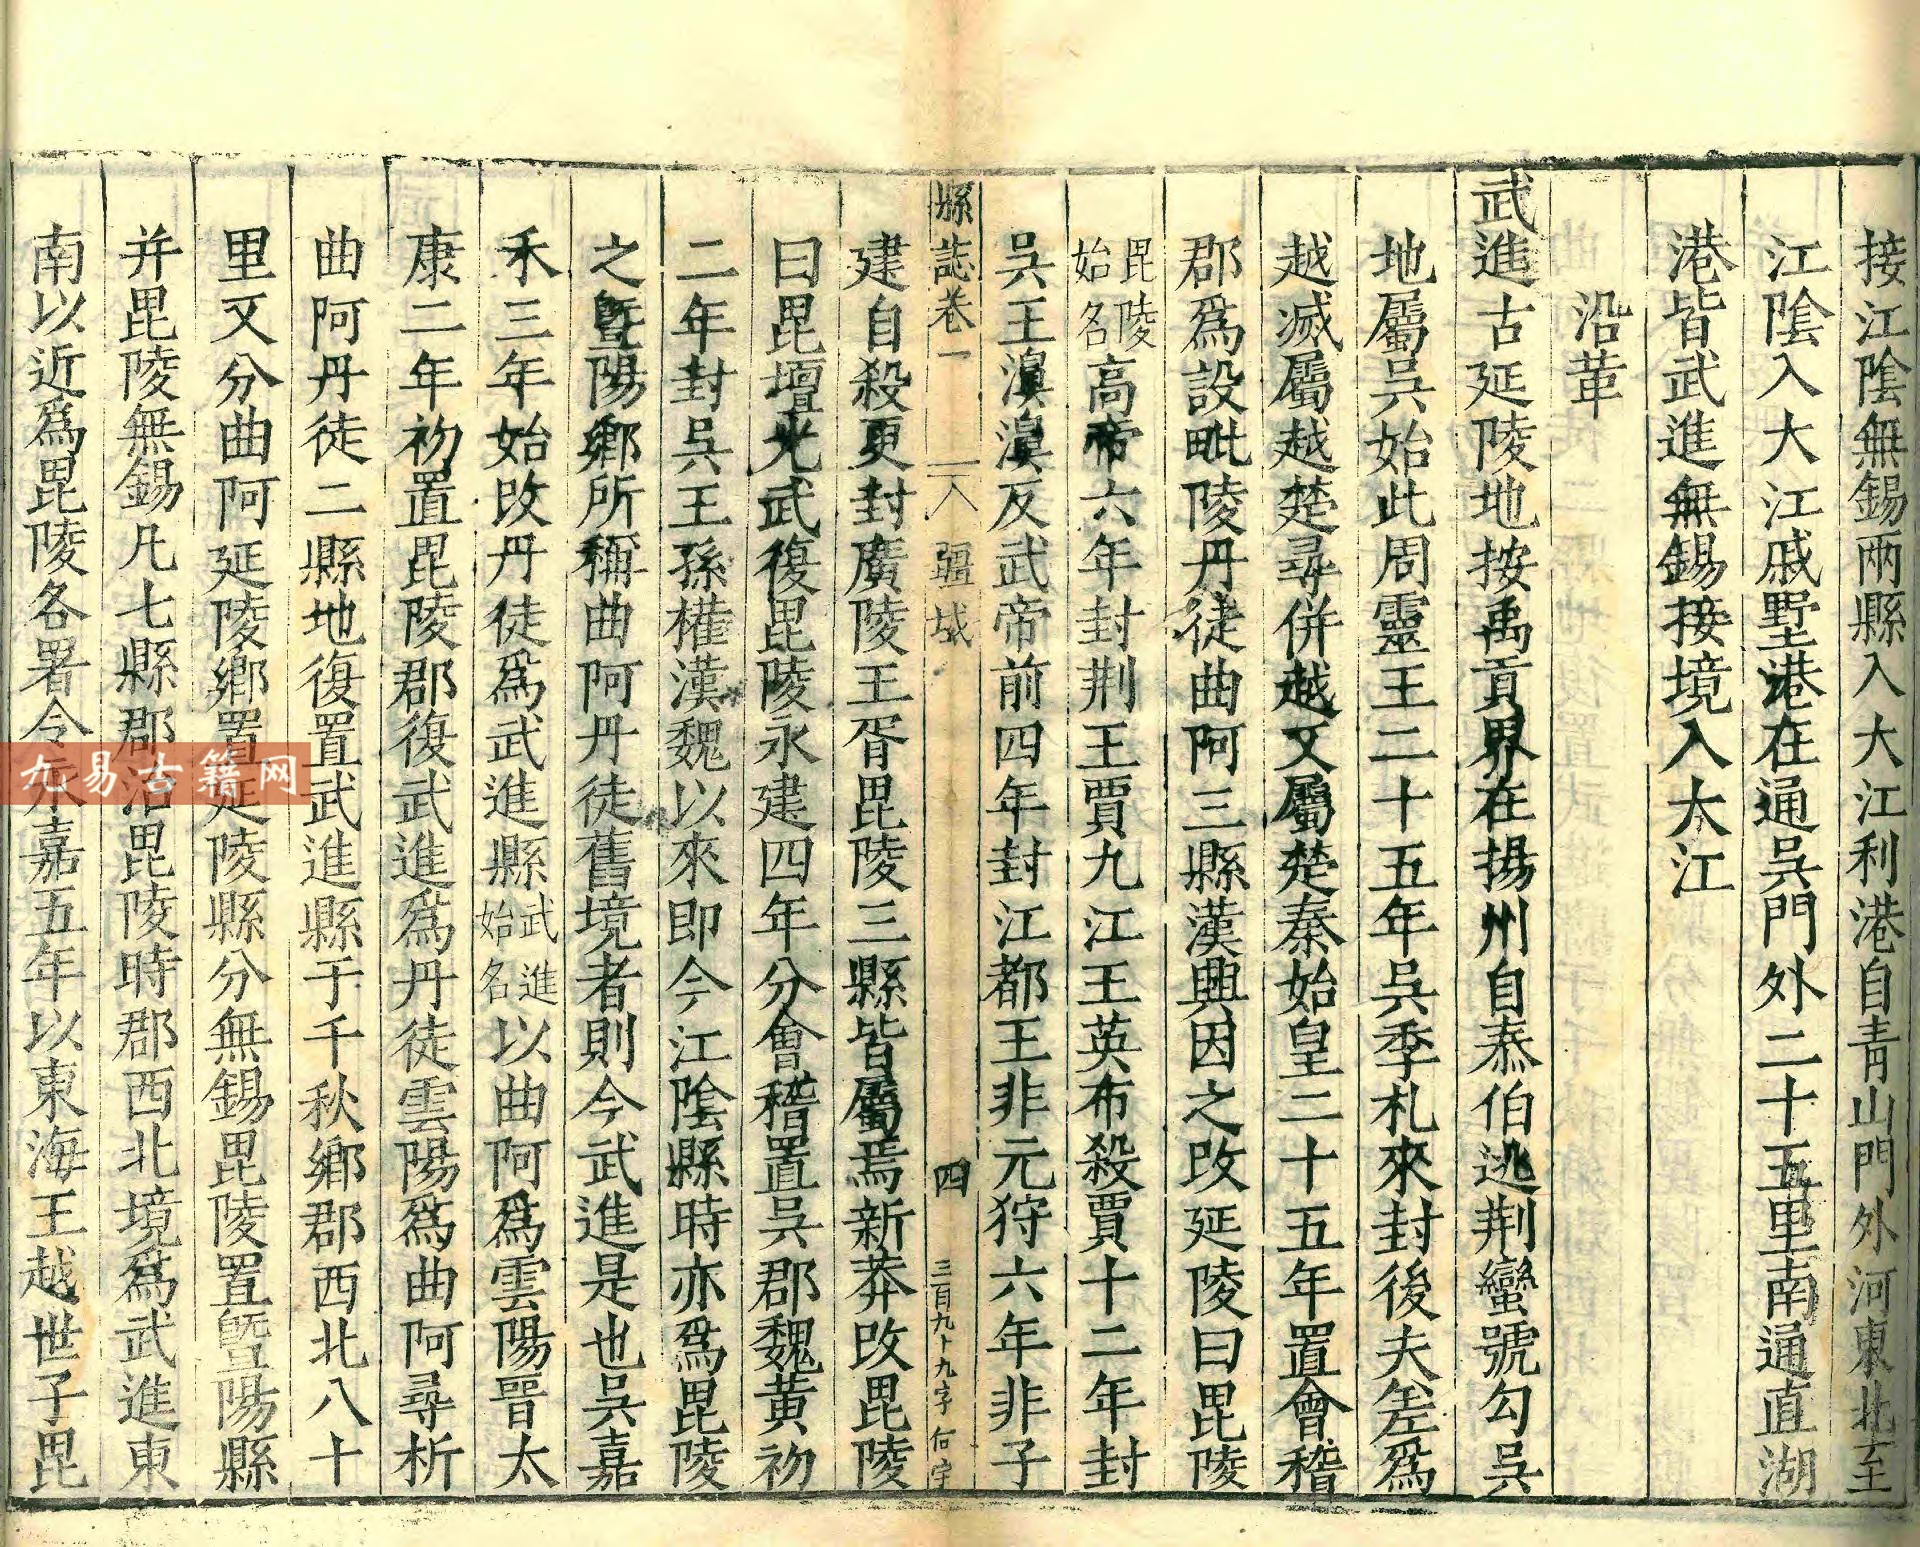 接江陰無錫兩縣入大江利港自青山門外河東北至
江陰入大江戚墅港在通吳門外二十五里南通直湖
港皆武進無錫接境入大江
沿革
武進古延陵地按禹貢界在揚州自泰伯逃荆蠻號勾吳
地屬吳始此周靈王二十五年吳季札來封後夫差爲
越滅屬越楚尋併越又屬楚秦始皇二十五年置會稽
郡爲設毗陵丹徒曲阿三縣漢興因之改延陵曰毘陵
毘陵始名高帝六年封荆王賈九江王英布殺賈十二年封
吳王濞濞反武帝前四年封江都王非元狩六年非子
建自殺更封廣陵王胥毘陵三縣皆屬焉新莽改毘陵
曰毘壇光武復毘陵永建四年分會稽置吳郡魏黃初
二年封吳王孫權漢魏以來即今江陰縣時亦爲毘陵
之暨陽鄉所稱曲阿丹徒舊境者則今武進是也吳嘉
禾三年始改丹徒爲武進縣武進始名以曲阿爲雲陽晉太
康二年初置毘陵郡復武進爲丹徒雲陽爲曲阿尋析
曲阿丹徒二縣地復置武進縣于千秋鄉郡西北八十
里又分曲阿延陵鄉置延陵縣分無錫毘陵置暨陽縣
并毘陵無錫凡七縣郡治毘陵時郡西北境爲武進東
南以近爲毘陵各署令永嘉五年以東海王越世子毘
縣誌卷一 八 疆域 四 三百九十九字 何宇
九易古籍网